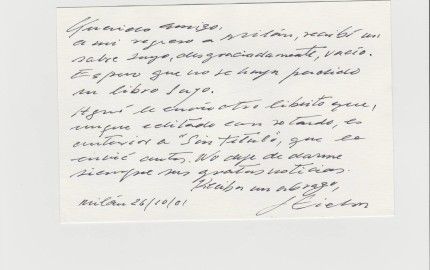 Querido amigo,
a mi regreso a Milán, recibí un
sobre suyo, desgraciadamente, vacío.
Espero que no se haya perdido
un libro suyo.
Aquí le envío otro librito que,
aunque editado con retardo, es
anterior a "Sin título", que le
envié antes. No deje de darme
siempre sus gratas noticias.
Reciba un abrazo,
Milán 26/10/01